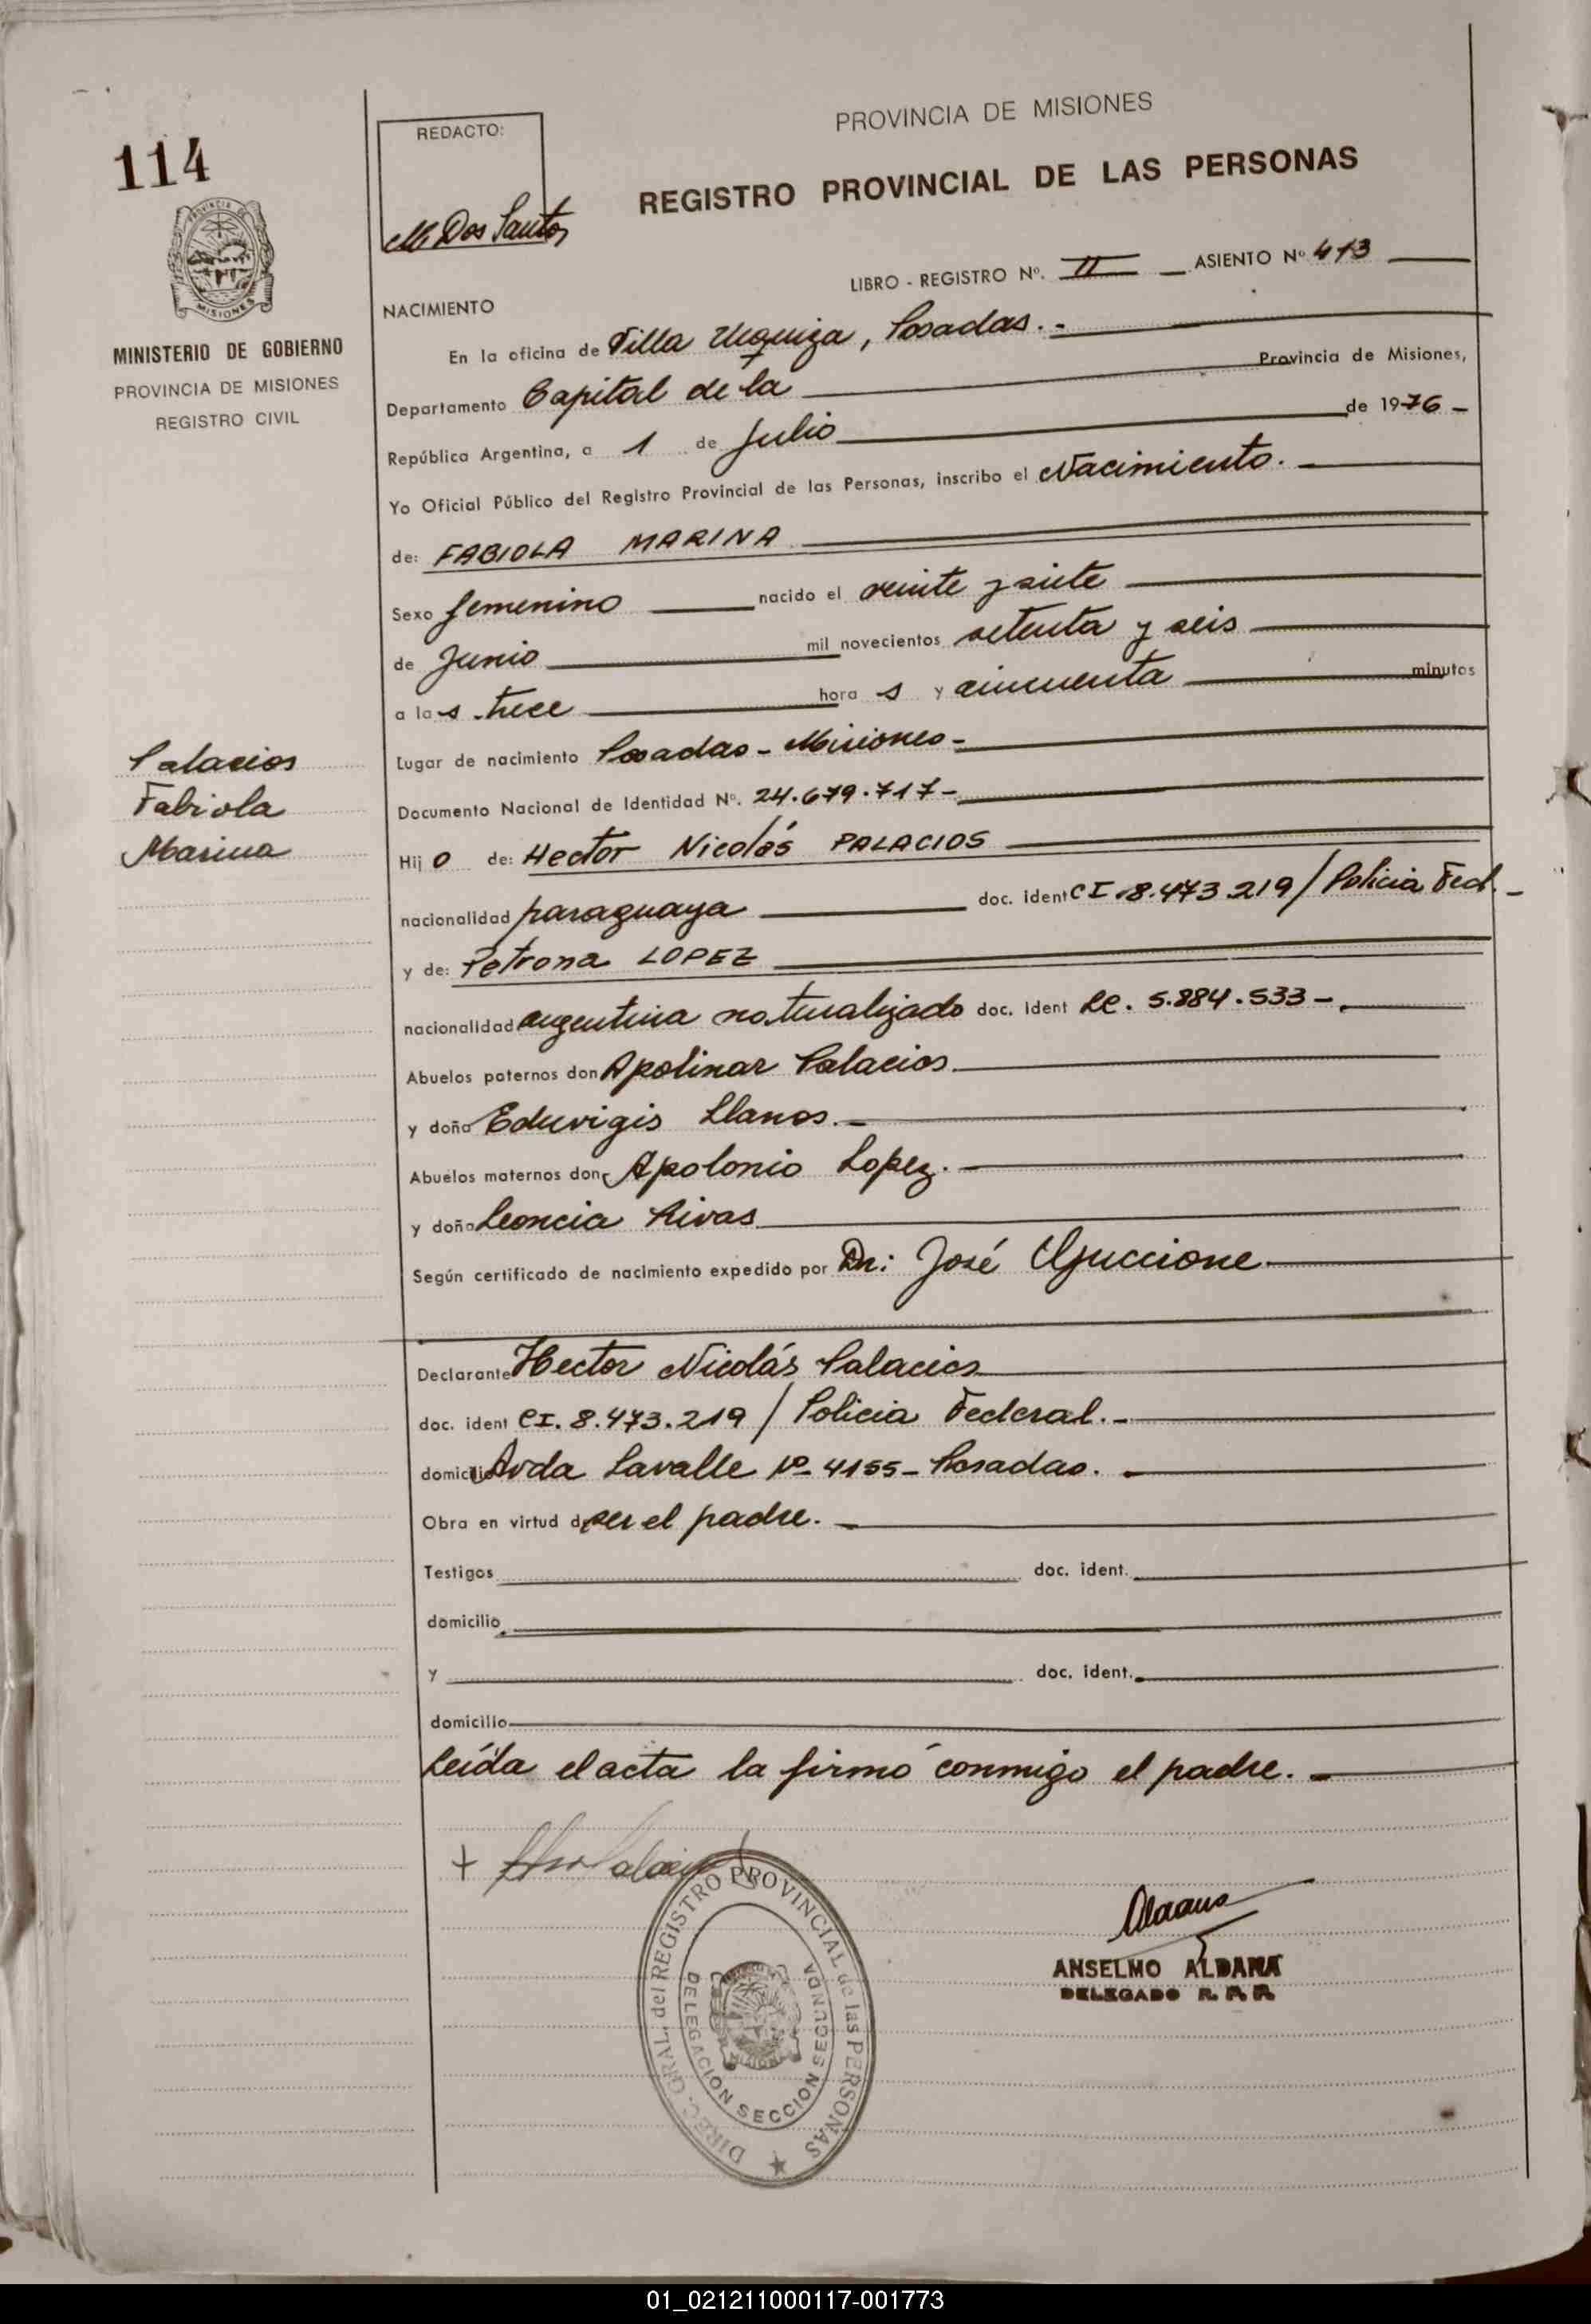 114
REDACTO:
M. Dos Santos
PROVINCIA DE MISIONES
REGISTRO PROVINCIAL DE LAS PERSONAS
LIBRO - REGISTRO Nº. II ASIENTO Nº 413
PROVINCIA DE
MISIONES
MINISTERIO DE GOBIERNO
PROVINCIA DE MISIONES
REGISTRO CIVIL
NACIMIENTO
En la oficina de Villa Urquiza, Posadas.-
Departamento Capital de la Provincia de Misiones,
República Argentina, a 1 de Julio de 1976-
Yo Oficial Público del Registro Provincial de las Personas, inscribo el Nacimiento.
de: FABIOLA MARINA
Sexo femenino nacido el veinte y siete
de Junio mil novecientos setenta y seis
a las trece horas y cincuenta minutos
Palacios
Fabiola
Marina
Lugar de nacimiento Posadas - Misiones-
Documento Nacional de Identidad Nº. 24.679.717-
Hijo de: Hector Nicolás PALACIOS
nacionalidad paraguaya doc. ident CI.8.473.219/Policia Fed.-
y de: Petrona LOPEZ
nacionalidad argentina naturalizado doc. Ident LC. 5.884.533-.
Abuelos paternos don Apolinar Palacios.
y doña Eduvigis Llanos.-
Abuelos maternos don Apolonio Lopez.-
y doña Leoncia Rivas
Según certificado de nacimiento expedido por Dr: José
Declarante Hector Nicolás Palacios
doc. ident CI. 8.473.219 / Policia Federal.-
domicilio Avda Lavalle Nº 4155- Posadas.
Obra en virtud de ser el padre.-
Testigos doc. ident.
domicilio
y doc. ident.
domicilio
Leída el acta la firmó conmigo el padre.-
DIREC. GRAL. del REGISTRO PROVINCIAL de las PERSONAS
DELEGACION SECCION SEGUNDA
ANSELMO ALDANA
DELEGADO R. P. P.
01_021211000117-001773